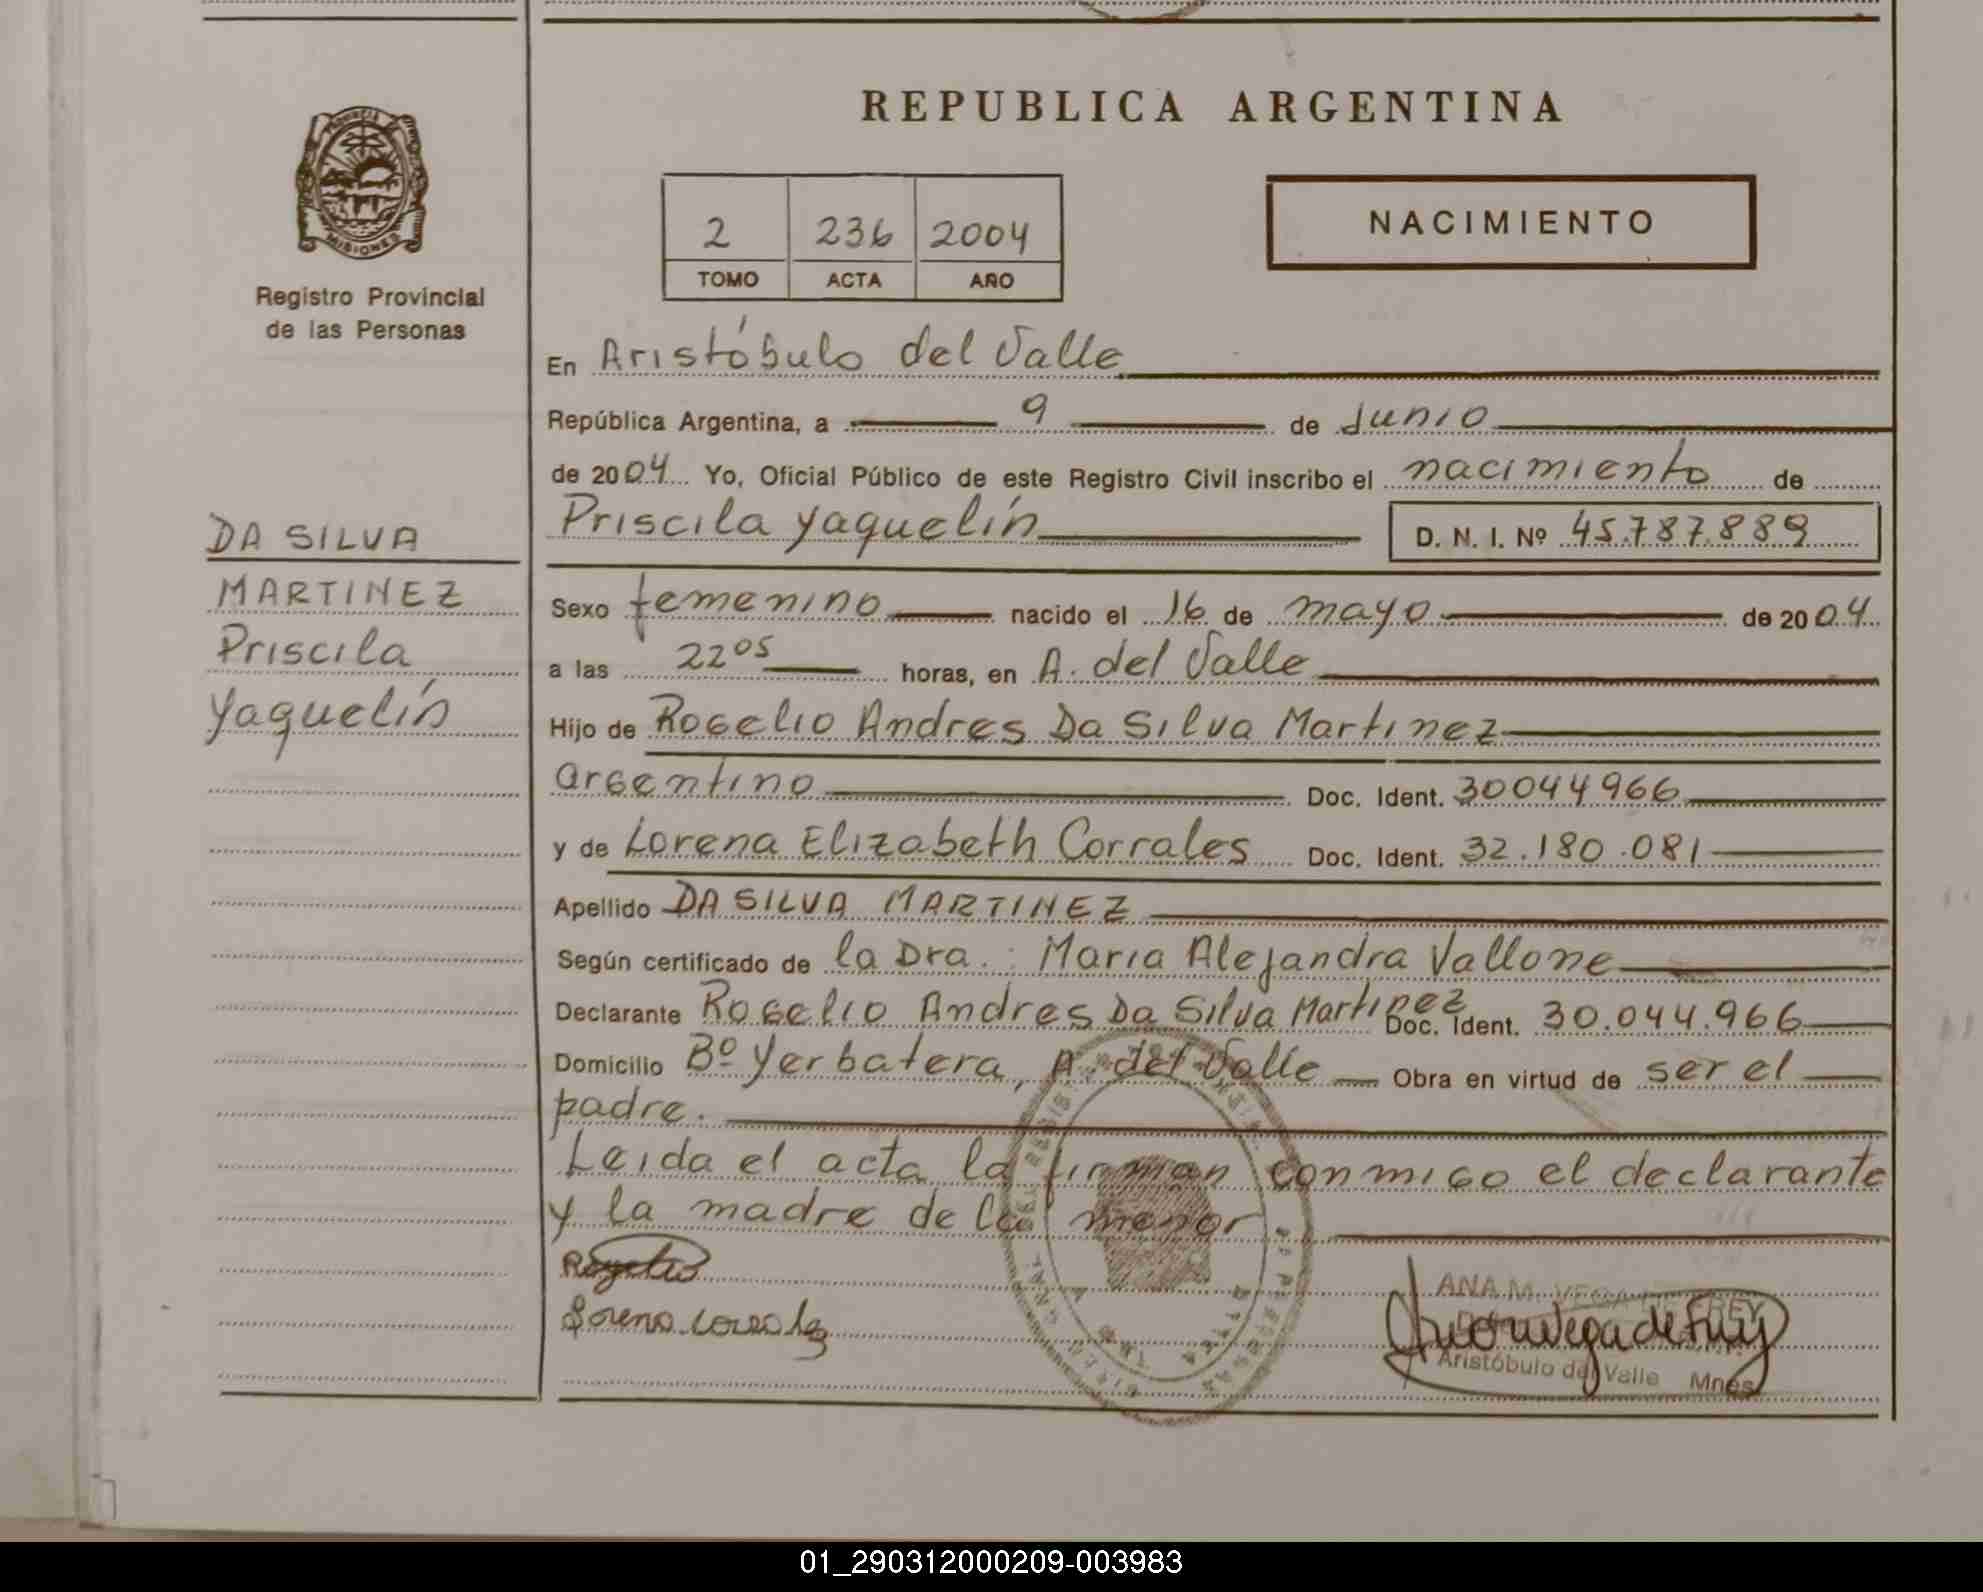 REPUBLICA ARGENTINA
PROVINCIA DE
MISIONES
Registro Provincial
de las Personas
2 236 2004
TOMO ACTA AÑO
NACIMIENTO
En Aristóbulo del Valle
República Argentina, a 9 de Junio
de 2004 Yo, Oficial Público de este Registro Civil inscribo el nacimiento de
Priscila Yaquelín D. N. I. Nº 45.787.889
DA SILVA
MARTINEZ
Priscila
Yaquelín
Sexo femenino nacido el 16 de mayo de 2004
a las 22 05 horas, en A. del Valle
Hijo de Rogelio Andres Da Silva Martinez
argentino Doc. Ident. 30044966
y de Lorena Elizabeth Corrales Doc. Ident. 32.180.081
Apellido DA SILVA MARTINEZ
Según certificado de la Dra.: Maria Alejandra Vallone
Declarante Rogelio Andres Da Silva Martinez Doc. Ident. 30.044.966
Domicilio Bº Yerbatera, A. del Valle Obra en virtud de ser el
padre.
Leida el acta la firman conmigo el declarante
y la madre de la menor
Rogelio
Lorena Corrales
ANA M. VEGA DE FREY
Aristóbulo del Valle Mnes
01_290312000209-003983